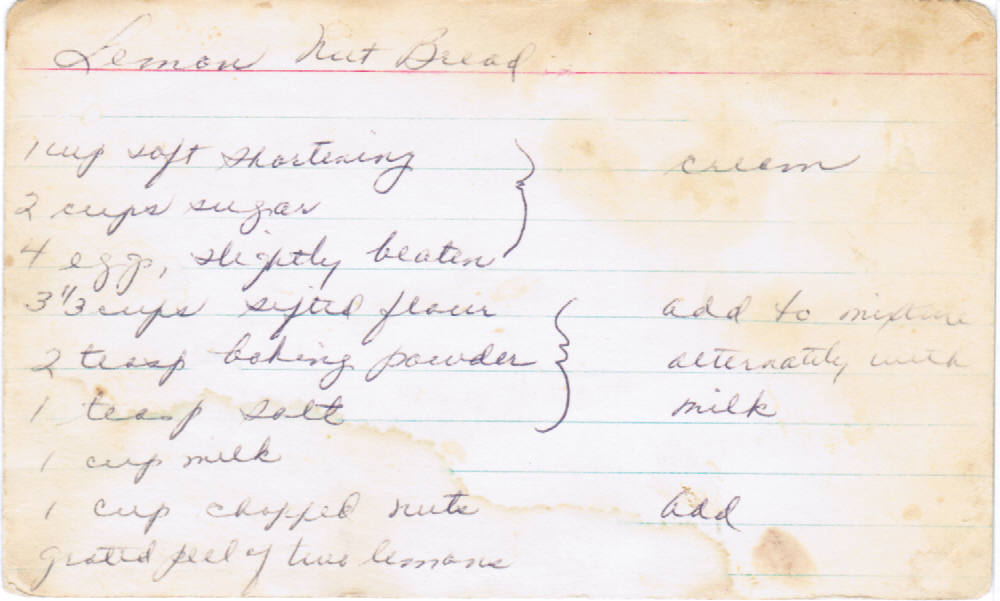 Lemon Nut Bread
1 cup soft shortening
cream
2 cups sugar
4 eggs, slightly beaten
3 1/3 cups sifted flour
add to mixture
2 teasp baking powder
alternately with
1 teasp salt
milk
1 cup milk
1 cup chopped nuts
add
grated peel of two lemons